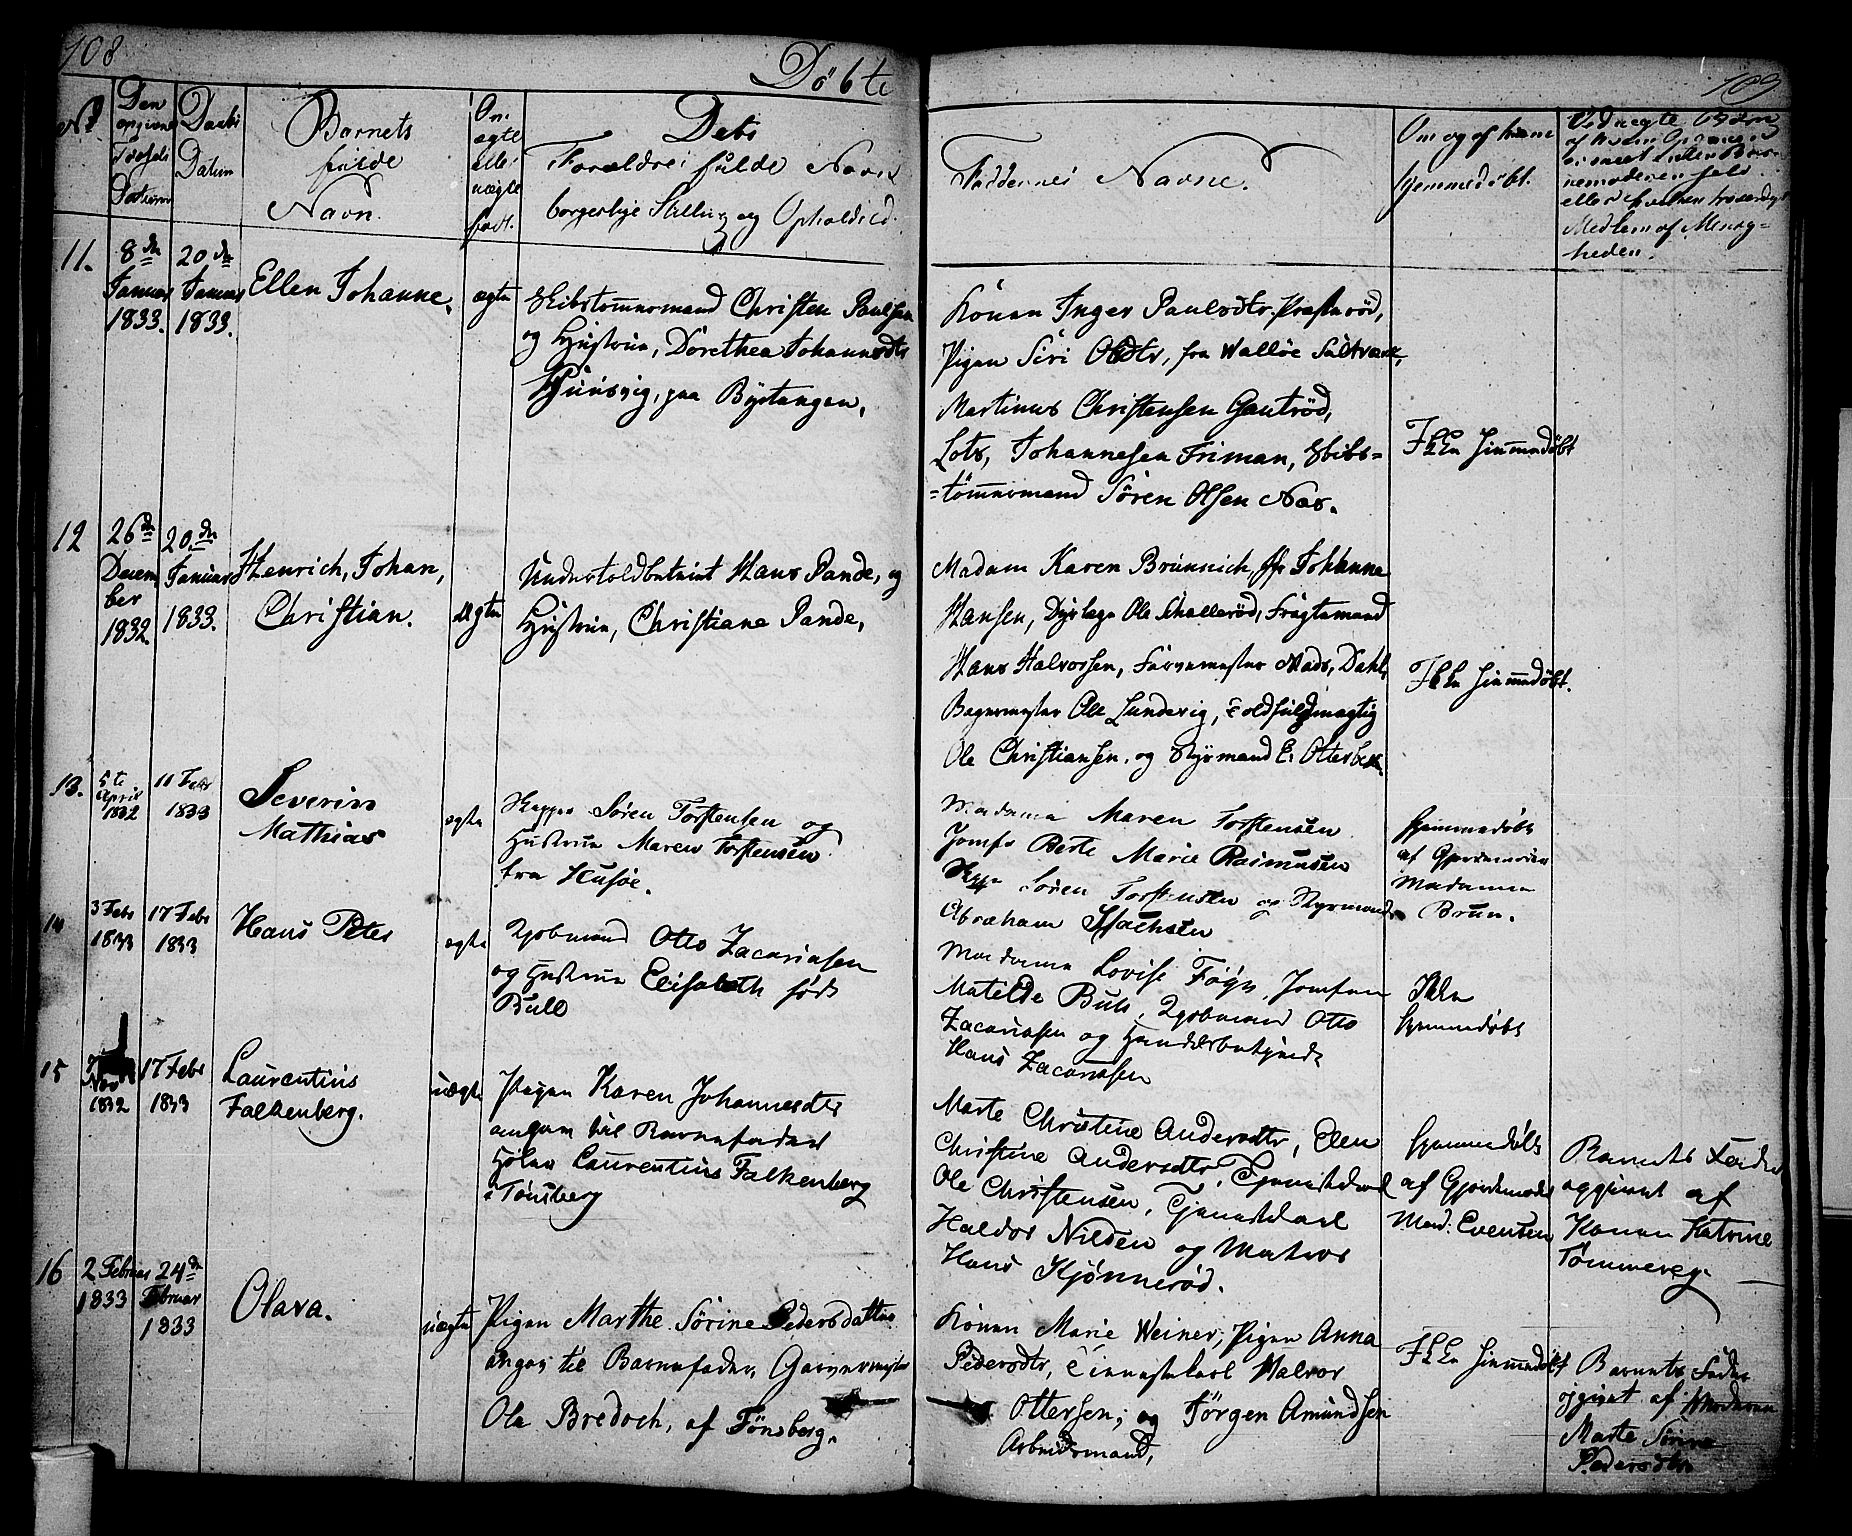 108
Døbte
109
No
Den
opgivne
Fødsels
Datum
Daabs
Datum
Barnets
fulde
Navn.
Om
ægte
eller
uægte
født.
Dets
Forældres fulde Navne
borgerlige Stilling og Opholdsted.
Faddernes Navne.
Om og af hvem
hjemmedøbt.
Ved uægte Børn
af hvem Opgivelsen
er skeet enten Bar-
nemoderen selv
eller hvilken troværdigt
Medlem af Menig-
heden.
11.
8de
Januar
1833.
20de
Januar
1833.
Ellen Johanne,
ægte
Skibstømmermand Christen Paulsen
og Hustrue, Dorethea Johannesdtr
paa Bystangen,
Konen Inger Paulsdtr. Præsterød,
Pigen Siri Olsdtr, fra Walløe Saltværk,
Martinus Christensen Gautrød,
Lots, Johannesen Friman, Skibs=
=tømmermand Sören Olsen Næs.
Ikke Hjemmedøbt
12
26de
Decem
ber
1832
20de
Januar
1833.
Henrich, Johan,
Christian.
Ægte
Undertoldbetient Hans Pande, og
Hustrue, Christiane Pande,
Madam Karen Brünnich, Jfr Johanne
Hansen, Dyrlæge Ole Skallerød, Fragtemand
Hans Halvorsen, Farvemester Mads, Dahl,
Bagermester Ole Lundevig, Toldfuldmægtig
Ole Christiansen, og Styrmand E. Otterbech.
Ikke Hjemmedøbt.
13.
5te
April
1832
11 Febr
1833
Severin
Mathias
ægte
Skipper Sören Torstensen og
Hustrue Maren Torstensen
fra Husøe.
Madame Maren Torstensen
Jomfr Berte Marie Rasmussen
Skipp Sören Torstensen og Styrmand
Abraham
Hjemmedøbt
af Gjordemoder
Madamme
Brun.
14
3 Febr
1833
17 Febr
1833
Hans Peter
ægte
Kjøbmand Otto Zacariasen
og Hustrue Elisabeth født
Bull
Madame Lovise Føyn, Jomfrue
Matilde Bull, Kjøbmand Otto
Zacariasen og Handelsbetjent
Hans Zacariasen
Ikke
Hjemmedøbt
15
Nov
1832
17 Febr
1833
Laurentius
Falkenberg.
uægte
Pigen Karen Johannesdtr
angav til Barnefader
Laurentius Falkenberg
i Tønsberg
Marte Christine Andersdtr, Elen
Christine Andersdtr, Tjenestekarl
Ole Christensen, Tjenestekarl
Haldor Nilsen og Matros
Hans Kjønnerød.
Hjemmedøbt
af Gjordemoder
Mad: Evensen
Barnets Fader
opgivet af
Konen Katrine
Tømmervig.
16
2 Februar
1833
24de
Februar
1833
Olava.
uægte
Pigen Marthe Sörine Pedersdatter
angav til Barnefader, Garvermester
Ole Bredoch, af Tönsberg.
Konen Marie Weiner, Pigen Anna
Pedersdtr, Tienestekarl Halvor
Ottersen, og Jörgen Amundsen
Arbeidsmand,
Ikke Hiemmedøbt
Barnets Fader
opgivet af Moderen
Marte Sörine
Pedersdtr